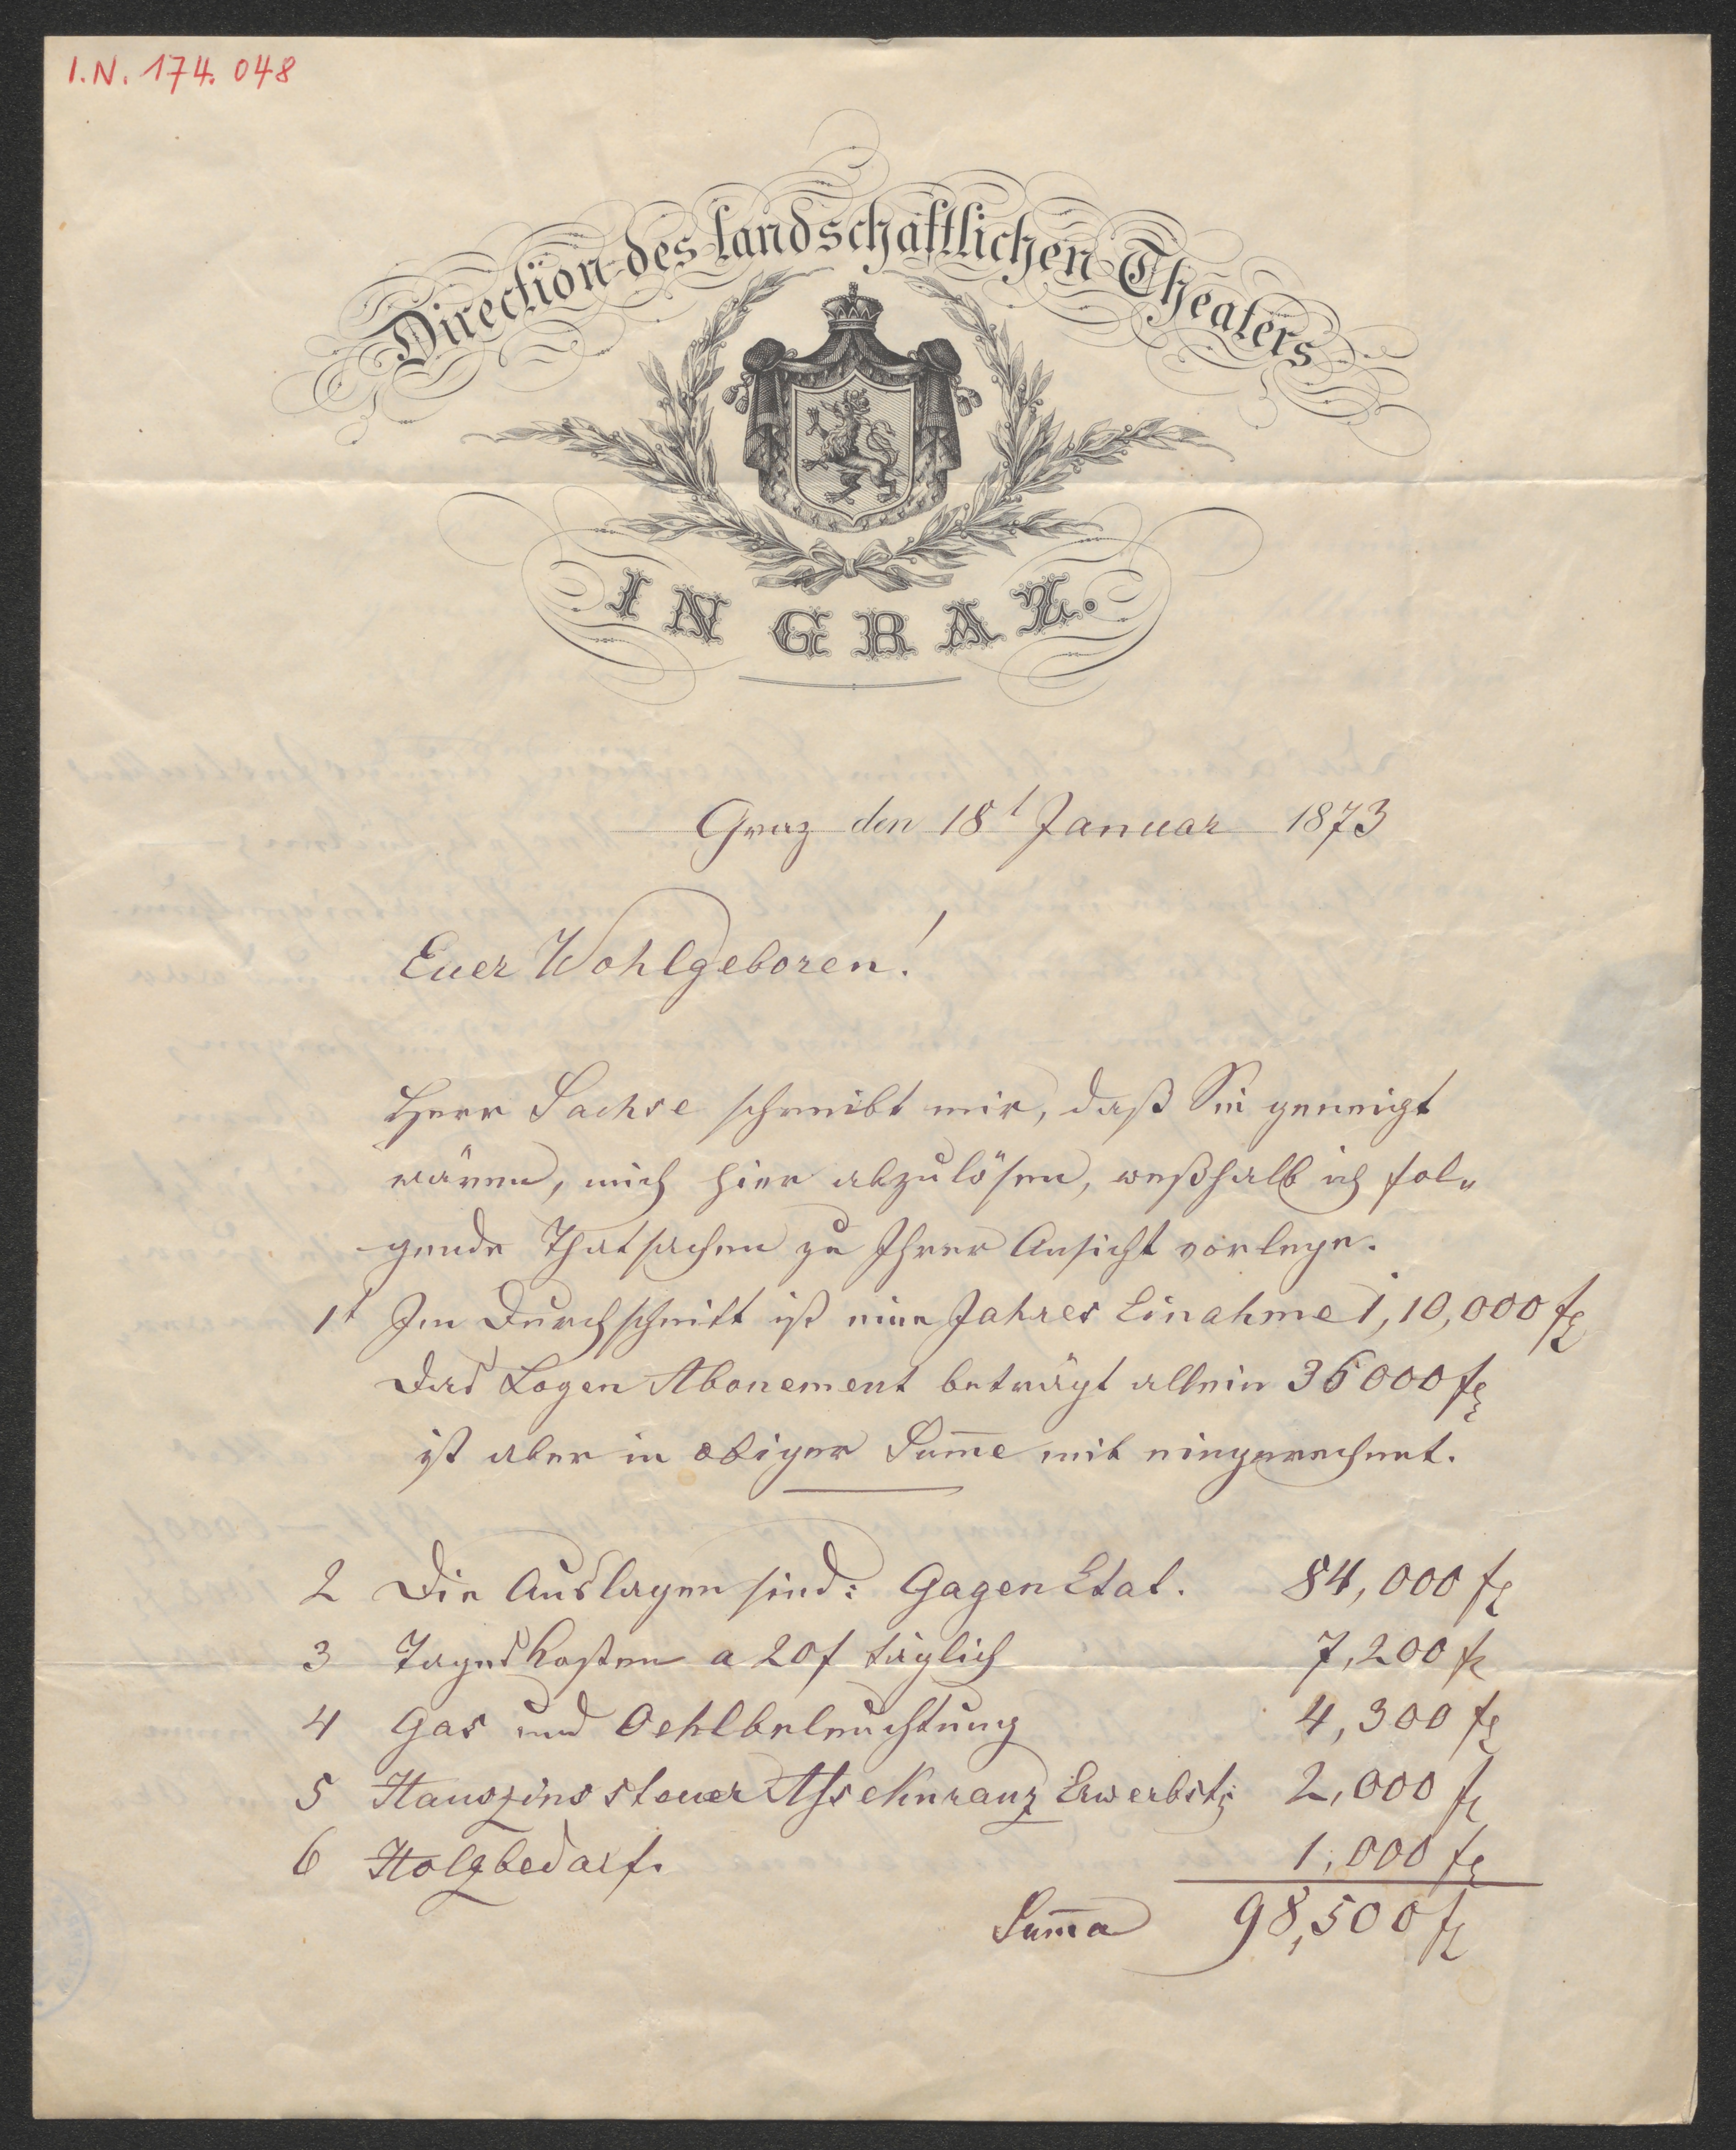 I.N. 174.048
Direction des landschaftlichen Theaters
IN GRAZ.
Graz den 18t Januar 1873
Euer Wohlgeboren!
Herr Sachse schreibt mir, daß Sie geneigt
wären, mich hier abzulösen, weßhalb ich fol„
gende Thatsachen zu Ihrer Ansicht vorlege.
1t Im Durchschnitt ist eine Jahres Einahme 1,10,000 fl
Das Logen Abonement beträgt allein 36000 fl
ist aber in obiger Sum̅e mit eingerechnet.
2 Die Auslagen sind: Gagen Etat. 84,000 fl
3 Tageskosten a 20 f täglich 7,200 fl
4 Gas und Oehlbeleuchtung 4,300 fl
5 Hauszinssteuer Assekuranz Erwerbst; 2,000 fl
6 Holzbedarf. 1,000 fl
Sum̅a 98,500 fl